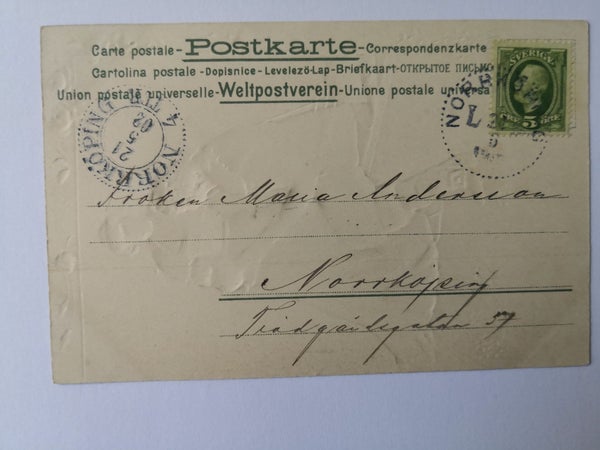 Carte postale-Postkarte-Correspondenzkarte
Cartolina postale-Dopisnice-Levelező-Lap-Briefkaart-ОТКРЫТОЕ ПИСЬМО
Union postale universelle-Weltpostverein-Unione postale universa
SVERIGE
5
ÖRE
NORRKÖPING
L
NORRKÖPING 4 TUR
21
5
02
Fröken Maria Andersson
Norrköping
Trädgårdsgatan 37